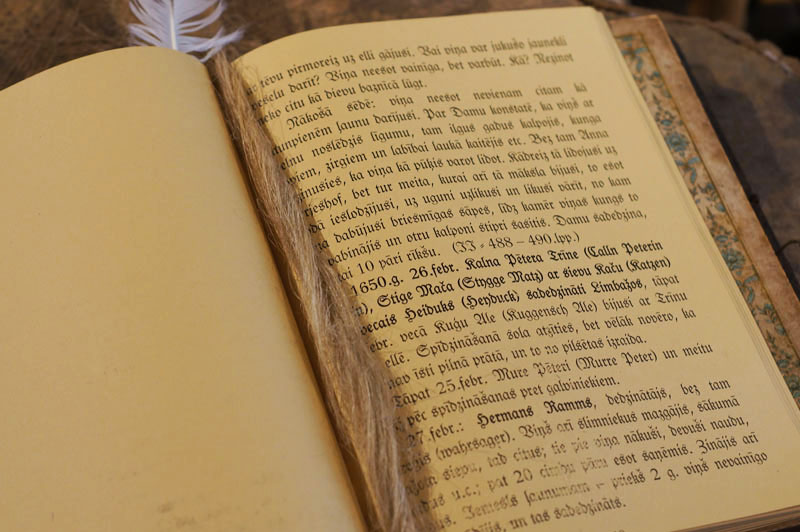 tēvu pirmoreiz uz elli gājusi. Vai viņa var jukušo jaunekli
darīt? Viņa neesot vainīga, bet varbūt. Kā? Neziņot
citu kā dievu baznīcā lūgt.
Nākošā sēdē: viņa neesot nevienam citam kā
ļaunu darījusi. Par Damu konstatē, ka viņš ar
noslēdzis līgumu, tam ilgus gadus kalpojis, kunga
zirgiem un labībai laukā kaitējis etc. Bez tam Anna
ka viņa kā pūķis varot lidot. Kādreiz tā lidojusi uz
bet tur meita, kurai arī tā māksla bijusi, to esot
ieslodzījusi, uz uguni uzlikusi un likusi vārīt, no kam
dabūjusi briesmīgas sāpes, līdz kamēr viņas kungs to
un otru kalponi stipri sasitis. Damu sadedzina,
10 pāri rīkšu. (II - 488 - 490.lpp.)
1650.g. 26.febr. Kalna Pētera Trīne (Calln Peterin
Stige Mača (Stygge Matz) ar sievu Kaču (Katzen)
vecais Heiduks (Heyduck) sadedzināti Limbažos, tāpat
vecā Kuģu Ale (Kuggensch Ale) bijusi ar Trīnu
ellē. Spīdzināšanā šola atzīties, bet vēlāk novēro, ka
nav īsti pilnā prātā, un to no pilsētas izraida.
Tāpat 25.febr. Mure Pēteri (Murre Peter) un meitu
pēc spīdzināšanas pret galviniekiem.
27.febr.: Hermans Ramms, dedzinātājs, bez tam
(wahrsager). Viņš arī slimniekus mazgājis, sākumā
siepu, tad citus; tie pie viņa nākuši, devuši naudu,
u.c.; pat 20 esot saņēmis. Zinājis arī
ļaunumam - priekš 2 g. viņš nevainīgo
un tas sadedzināts.